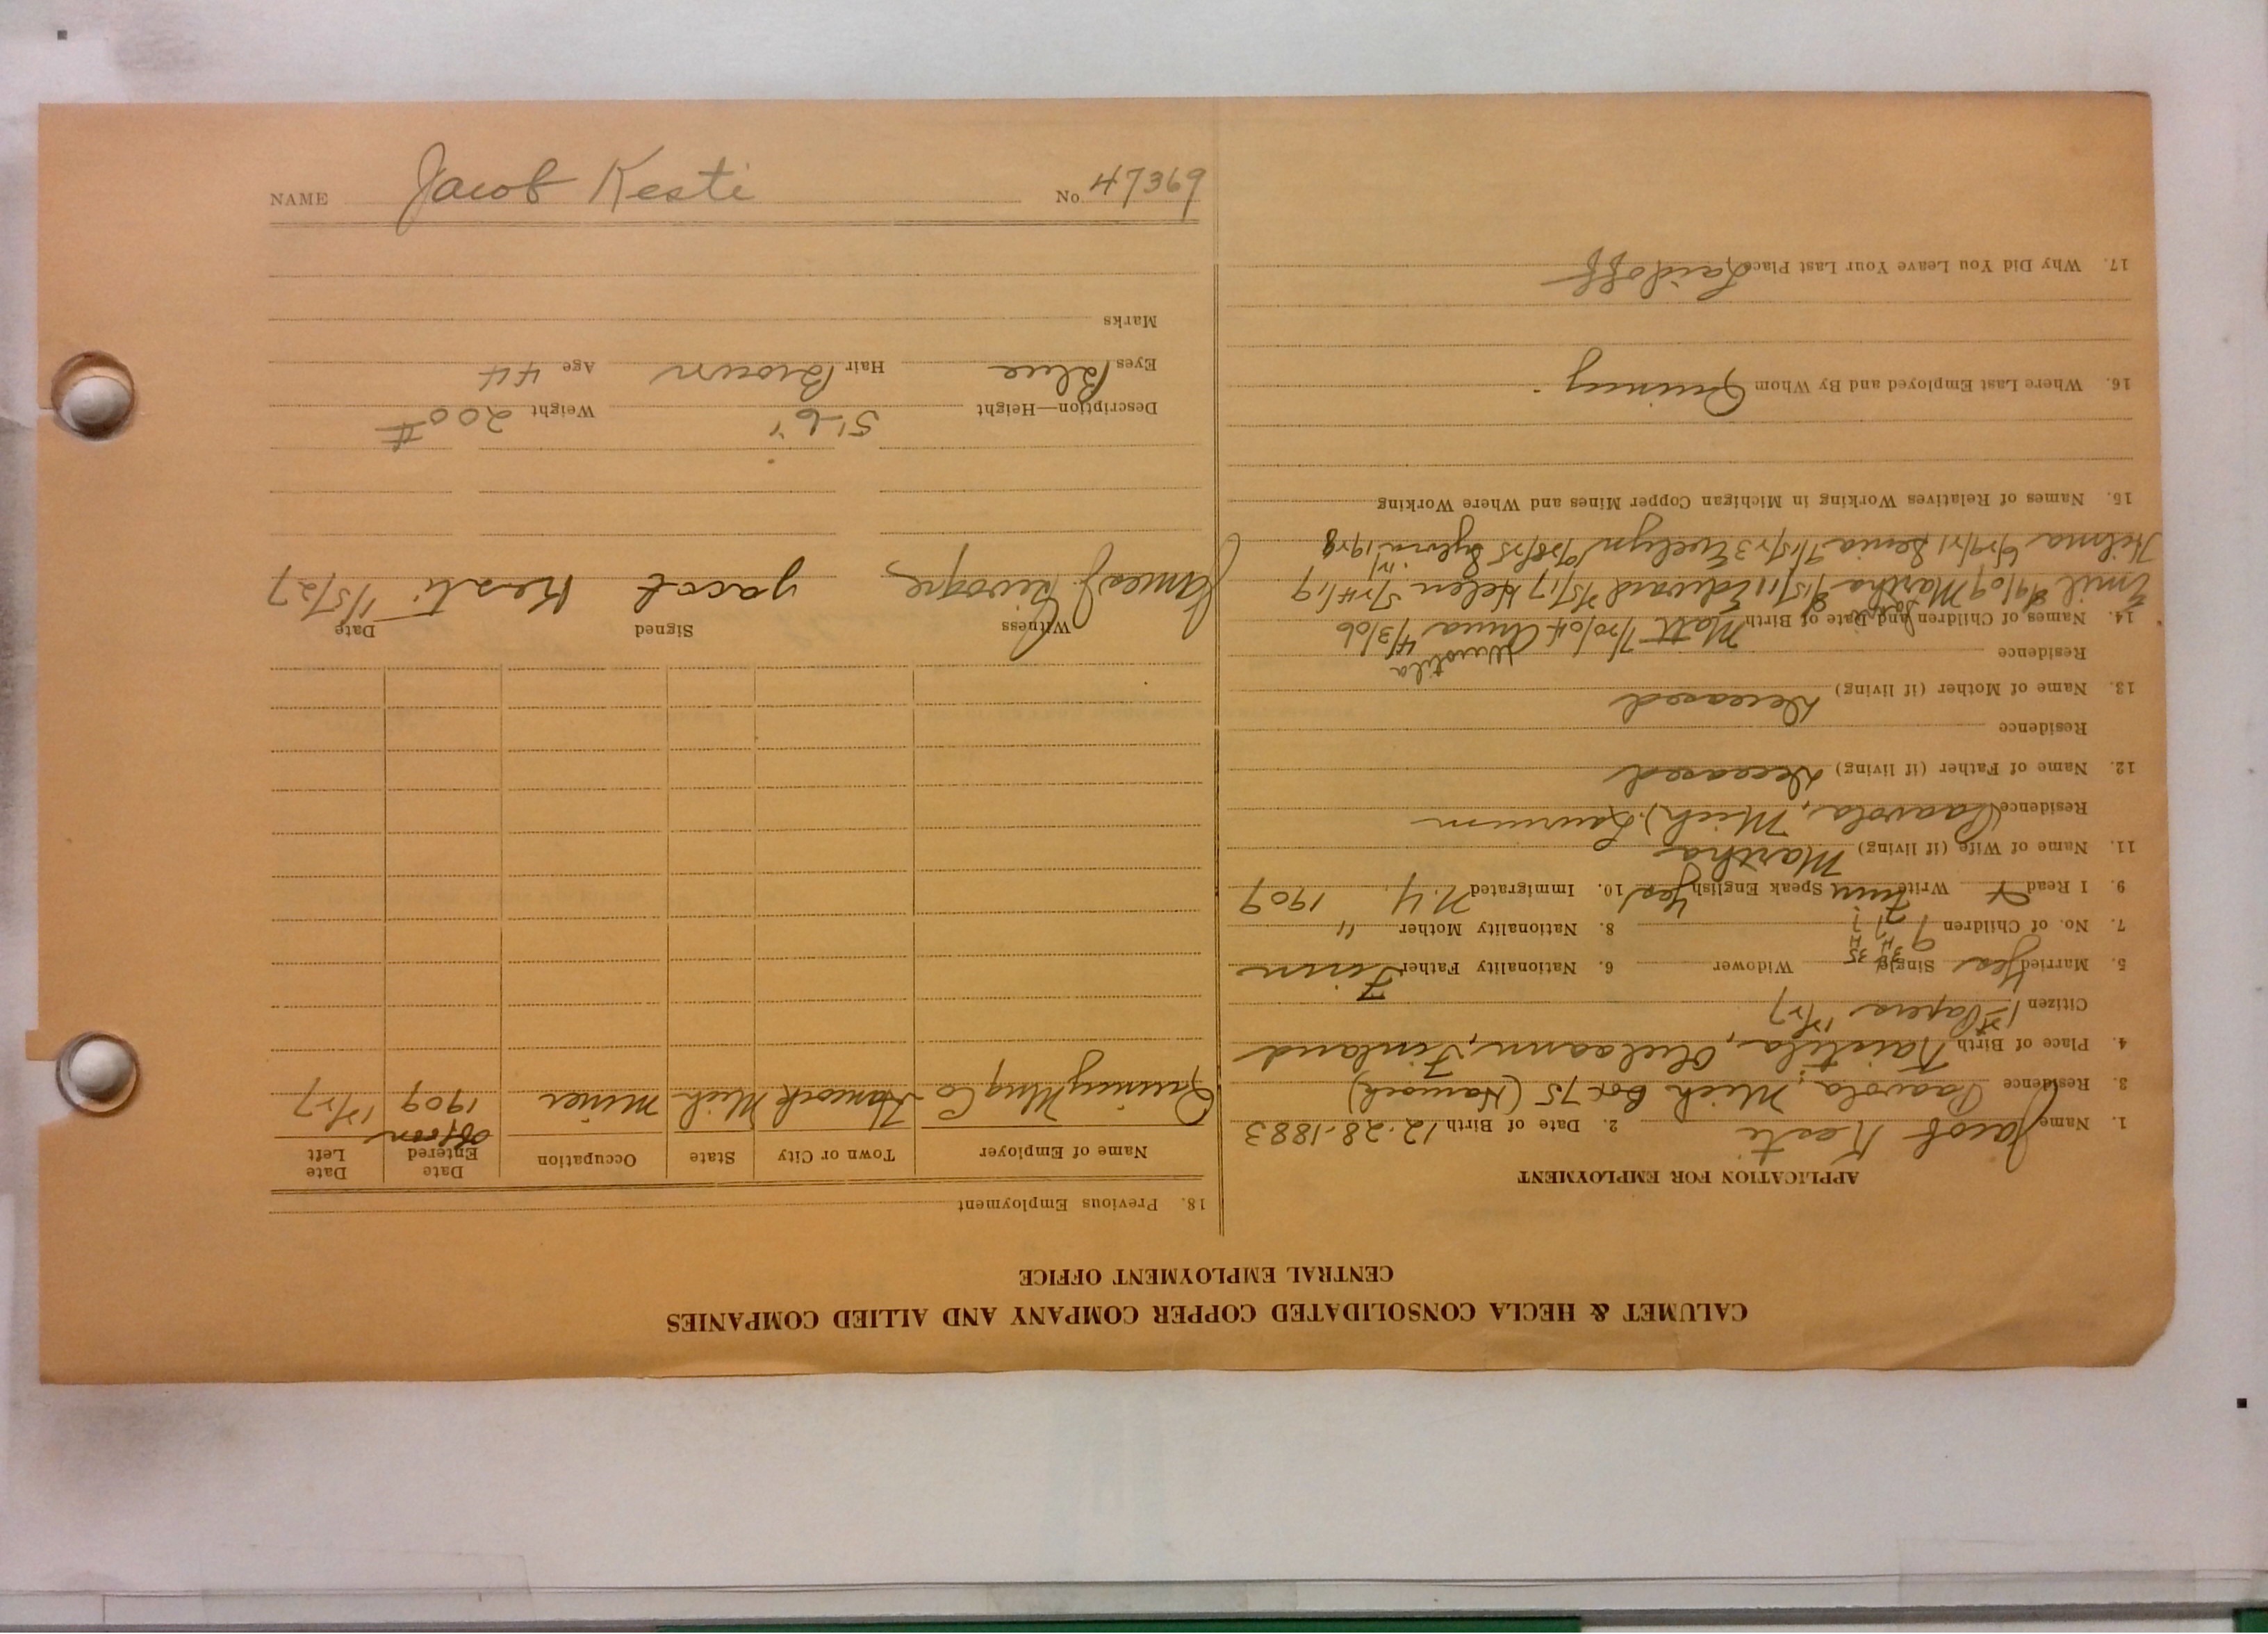 NAME Jacob Kesti No 47369
CALUMET & HECLA CONSOLIDATED COPPER COMPANY AND ALLIED COMPANIES
CENTRAL EMPLOYMENT OFFICE
APPLICATION FOR EMPLOYMENT
1. Name Jacob Kesti 2. Date of Birth 12-28-1883
3. Residence Paavola, Mich Box 75 (Hancock)
4. Place of Birth Finland
Citizen 1st Papers
5. Married Yes Single Widower 6. Nationality Father Finn
7. No. of Children 9 8. Nationality Mother "
9. I Read x Write Finn Speak English Yes 10. Immigrated N.Y. 1909
11. Name of Wife (if living) Martha
Residence (Paavola, Mich) Laurium
12. Name of Father (if living) Deceased
Residence
13. Name of Mother (if living) Deceased
Residence
14. Names of Children and Date of Birth Matt 7/20/04 Anna 4/3/06
Emil Martha Edward Helen
Hilma Evelyn Sylvia
15. Names of Relatives Working in Michigan Copper Mines and Where Working
16. Where Last Employed and By Whom Quincy
17. Why Did You Leave Your Last Place Laid off
18. Previous Employment
Name of Employer Town or City State Occupation Date Entered Date Left
Quincy Mng Co Hancock Mich miner 1909
Witness Signed Date
James Jacob Kesti 1/5/27
Description—Height 5'-6" Weight 200#
Eyes Blue Hair Brown Age 44
Marks